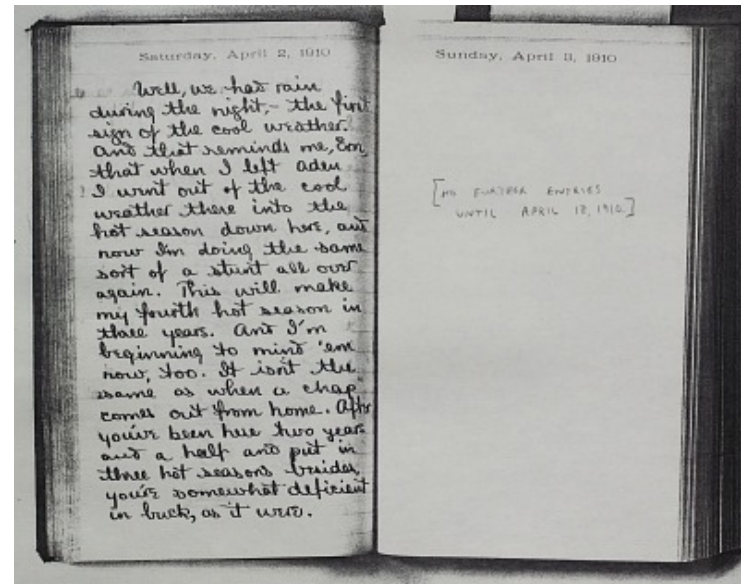 Saturday, April 2, 1910
Well, we had rain
during the night,- the first
sign of the cool weather.
And that reminds me, Em,
that when I left Aden
I went out of the cool
weather there into the
hot season down here, and
now I'm doing the same
sort of a stunt all over
again. This will make
my fourth hot season in
three years. And I'm
beginning to mind 'em
now, too. It isn't the
same as when a chap
comes out from home. After
you've been here two years
and a half and put in
three hot seasons besides,
you're somewhat deficient
in buck, as it were.
Sunday, April 3, 1910
[NO FURTHER ENTRIES
UNTIL APRIL 12, 1910.]